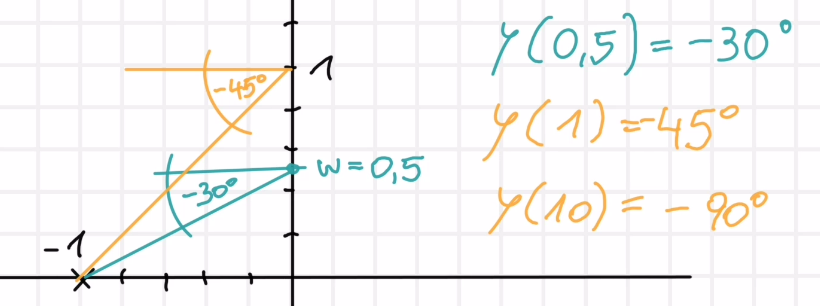 φ(0,5) = -30°
1
-45°
φ(1) = -45°
w = 0,5
-30°
φ(10) = -90°
-1